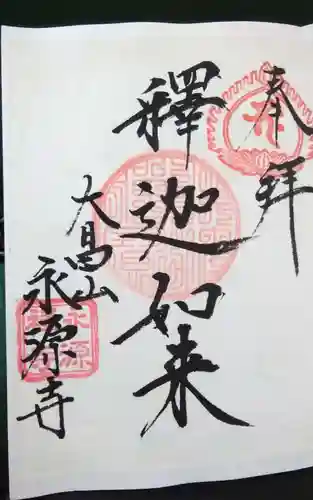 奉拝
釋迦如来
大昌山
永源寺